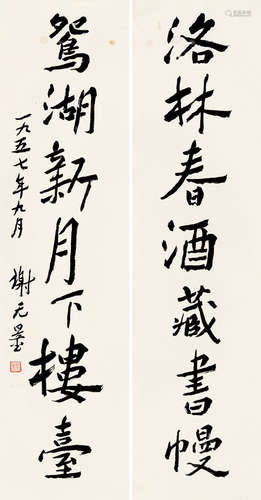 洛林春酒藏書幔
鴛湖新月下樓臺
一九五七年九月
謝元墨